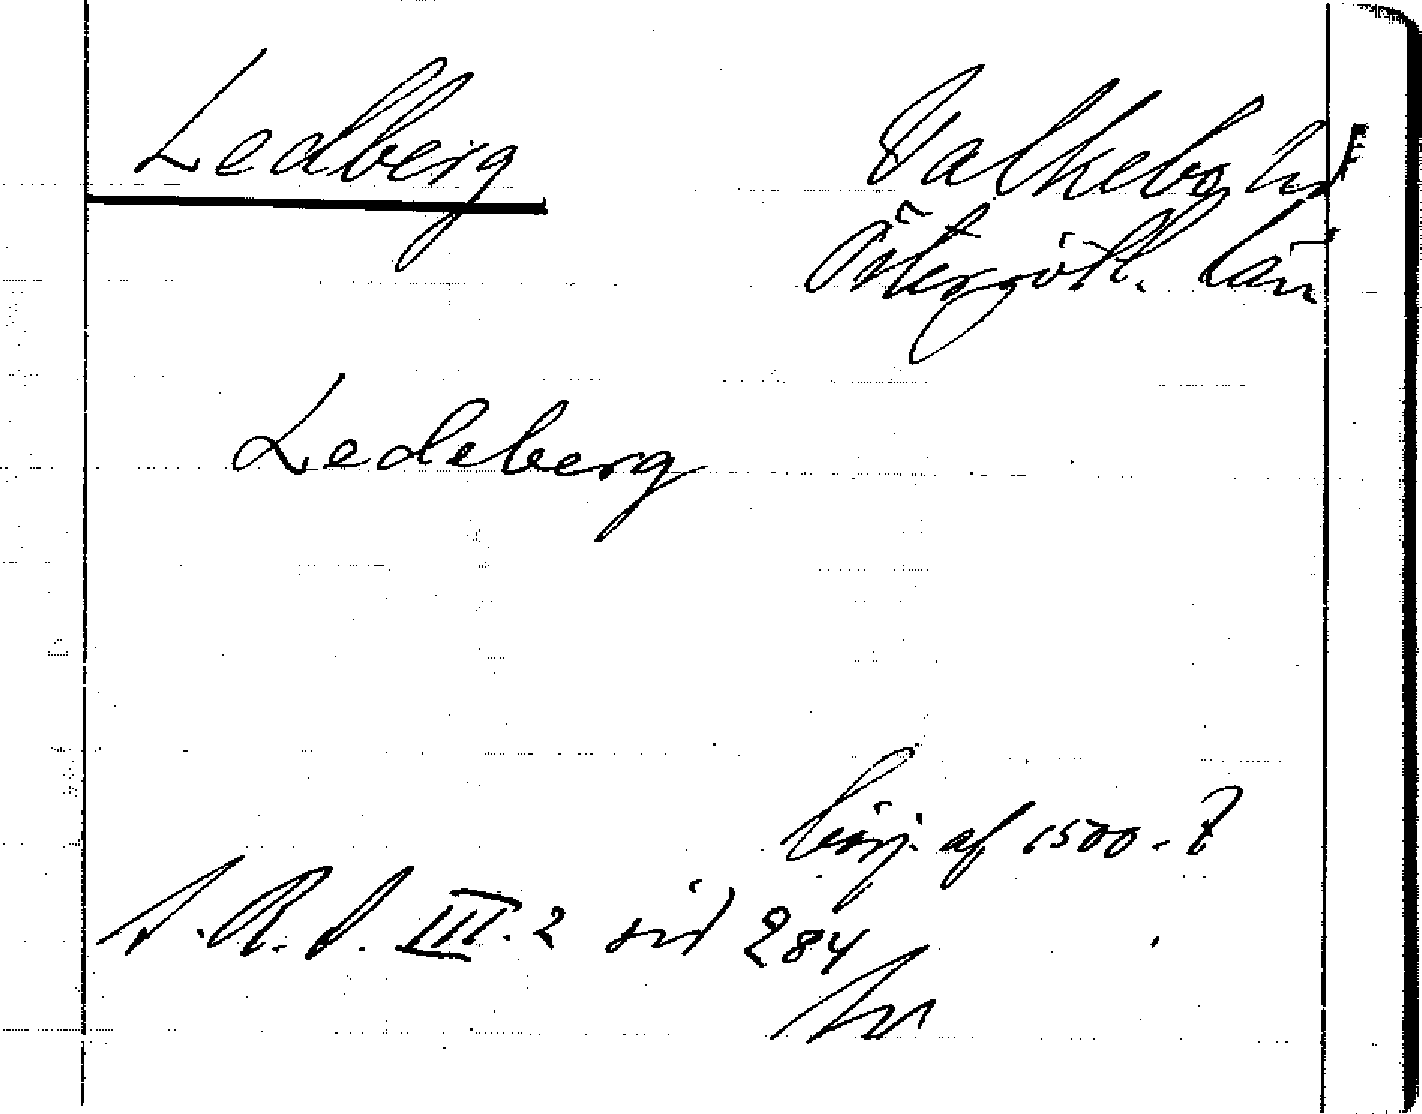 Ledberg
Valkebo hd
Östergötl. län
Ledeberg
börj. af 1500-t
S.R.S. III.2 sid 284